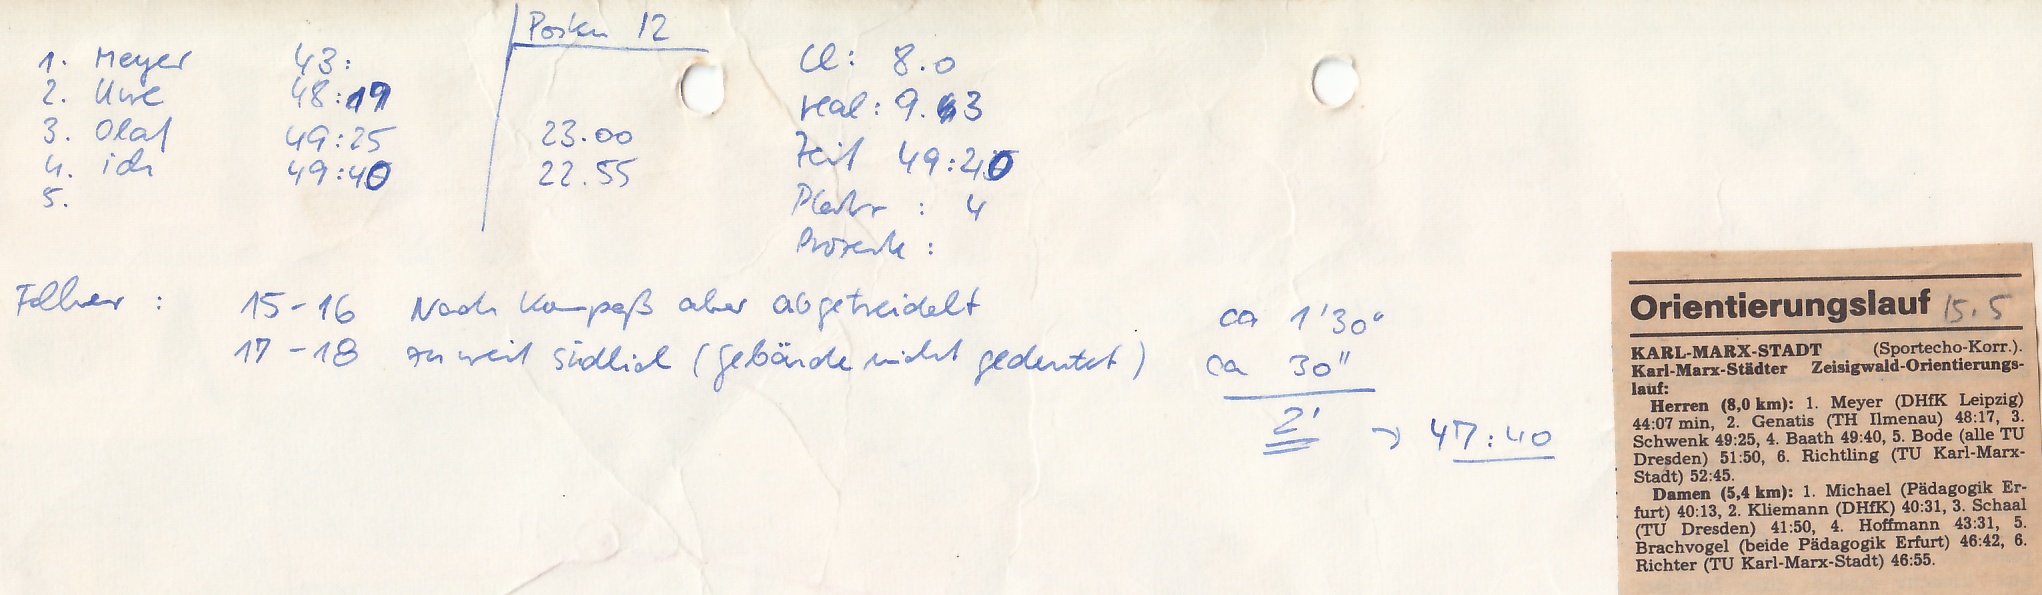 Posten 12
1. Meyer 43:
2. Uwe 48:19
3. Olaf 49:25 23.00
4. ich 49:40 22.55
5.
Cl: 8.0
real: 9.
Zeit 49:
Platz : 4
Prozente :
Fehler : 15-16 Nach Kompaß aber abgetreidelt ca 1'30"
17-18 zu weit südlich (Gebäude nicht gedeutet) ca 30"
2' → 47:40
Orientierungslauf 15.5
KARL-MARX-STADT (Sportecho-Korr.).
Karl-Marx-Städter Zeisigwald-Orientierungs-
lauf:
Herren (8,0 km): 1. Meyer (DHfK Leipzig)
44:07 min, 2. Genatis (TH Ilmenau) 48:17, 3.
Schwenk 49:25, 4. Baath 49:40, 5. Bode (alle TU
Dresden) 51:50, 6. Richtling (TU Karl-Marx-
Stadt) 52:45.
Damen (5,4 km): 1. Michael (Pädagogik Er-
furt) 40:13, 2. Kliemann (DHfK) 40:31, 3. Schaal
(TU Dresden) 41:50, 4. Hoffmann 43:31, 5.
Brachvogel (beide Pädagogik Erfurt) 46:42, 6.
Richter (TU Karl-Marx-Stadt) 46:55.